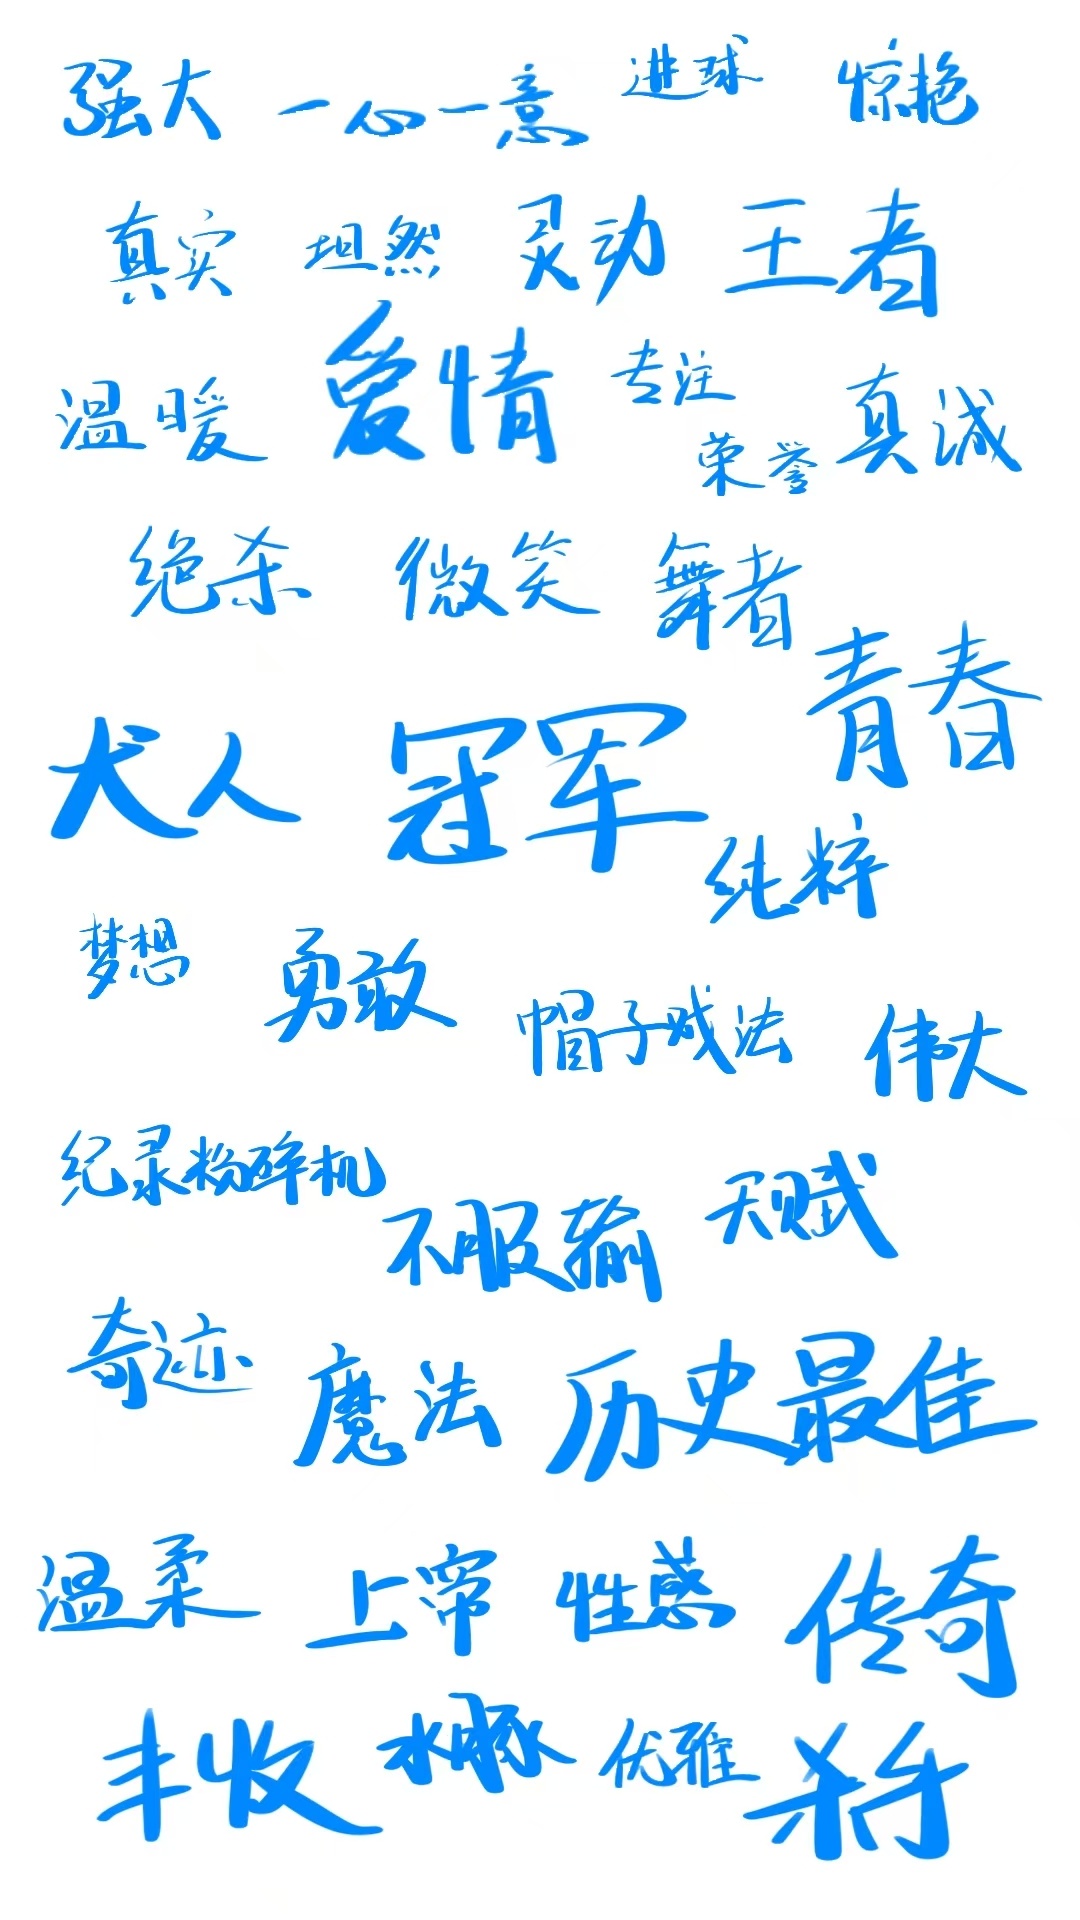 强大 一心一意 进球 惊艳
真实 坦然 灵动 王者
温暖 爱情 专注
荣誉 真诚
绝杀 微笑 舞者
青春
犬人 冠军
纯粹
梦想 勇敢 帽子戏法 伟大
纪录粉碎机 不服输 天赋
奇迹 魔法 历史最佳
温柔 上帝 性感 传奇
丰收 水豚 优雅